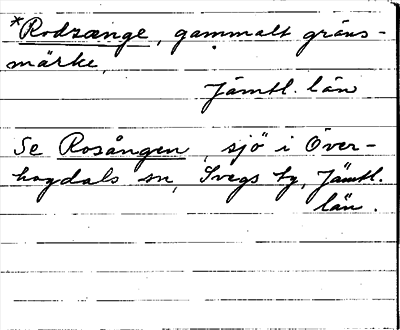 *Rodzænge, gammalt gräns-
märke,
Jämtl. län
Se Rosången, sjö i Över-
hogdals sn, Svegs tg, Jämtl.
län.